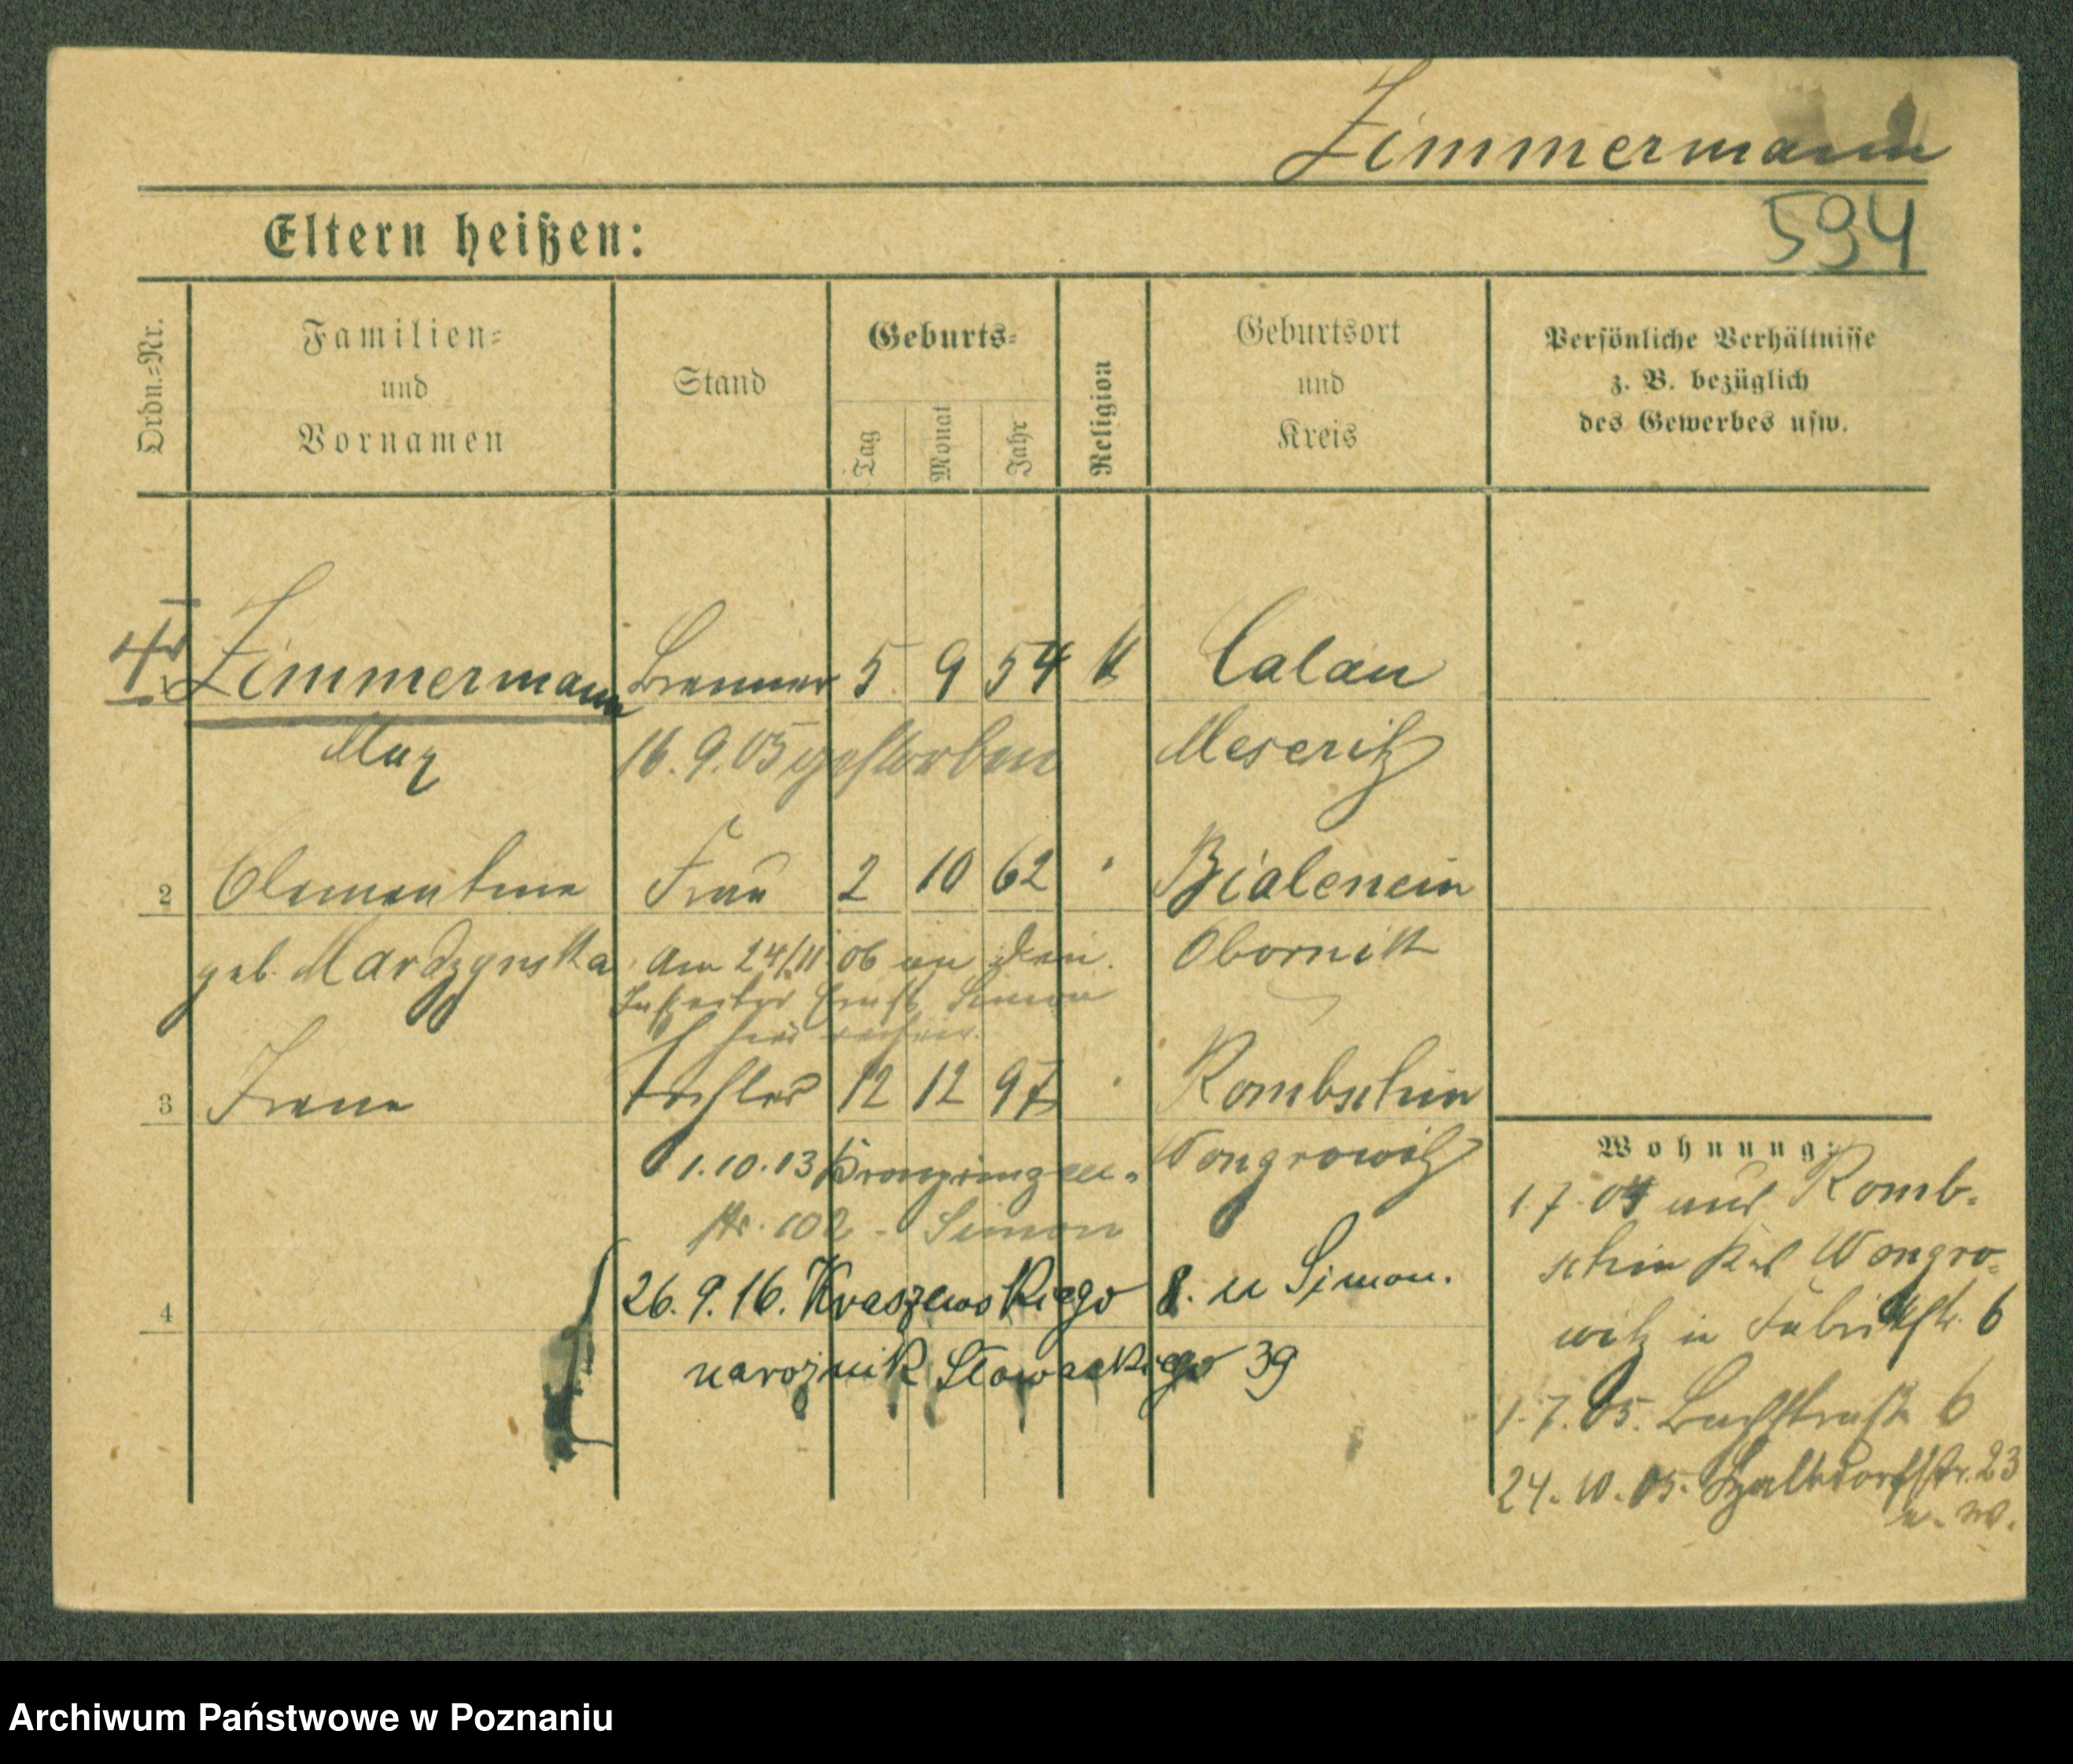 Zimmermann
594
Eltern heißen:
Ordn.=Nr.
Familien=
und
Vornamen
Stand
Geburts=
Tag
Monat
Jahr
Religion
Geburtsort
und
Kreis
Persönliche Verhältnisse
z. B. bezüglich
des Gewerbes usw.
Zimmermann Brenner 5 9 54 k Calau
Max 16.9.05 gestorben Meseritz
2 Clementine Frau 2 10 62 Bialenein
geb. Mardzynska Am 24/11 06 an den Obornik
Ernst Simon
3 Irene Tochter 12 12 97 Rombschin
1.10.13 Kronprinzen- Wongrowitz
str. 102 - Simon
4
26.9.16. Kraszewskiego 8. u Simon.
narożnik Słowackiego 39
Wohnung:
1.7.04 aus Romb-
schin Krs Wongro-
witz in Fabrikstr. 6
1.7.05. Bachstraße 6
24.10.05. 23